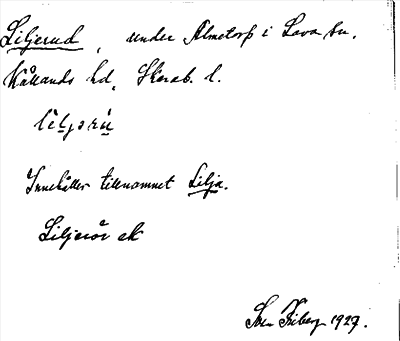 Liljerud, under Almetorp i Lova sn.
Kållands hd, Skarab. l.
Innehåller tillnamnet Lilja.
Liljerör ek
Sven Friberg 1927.